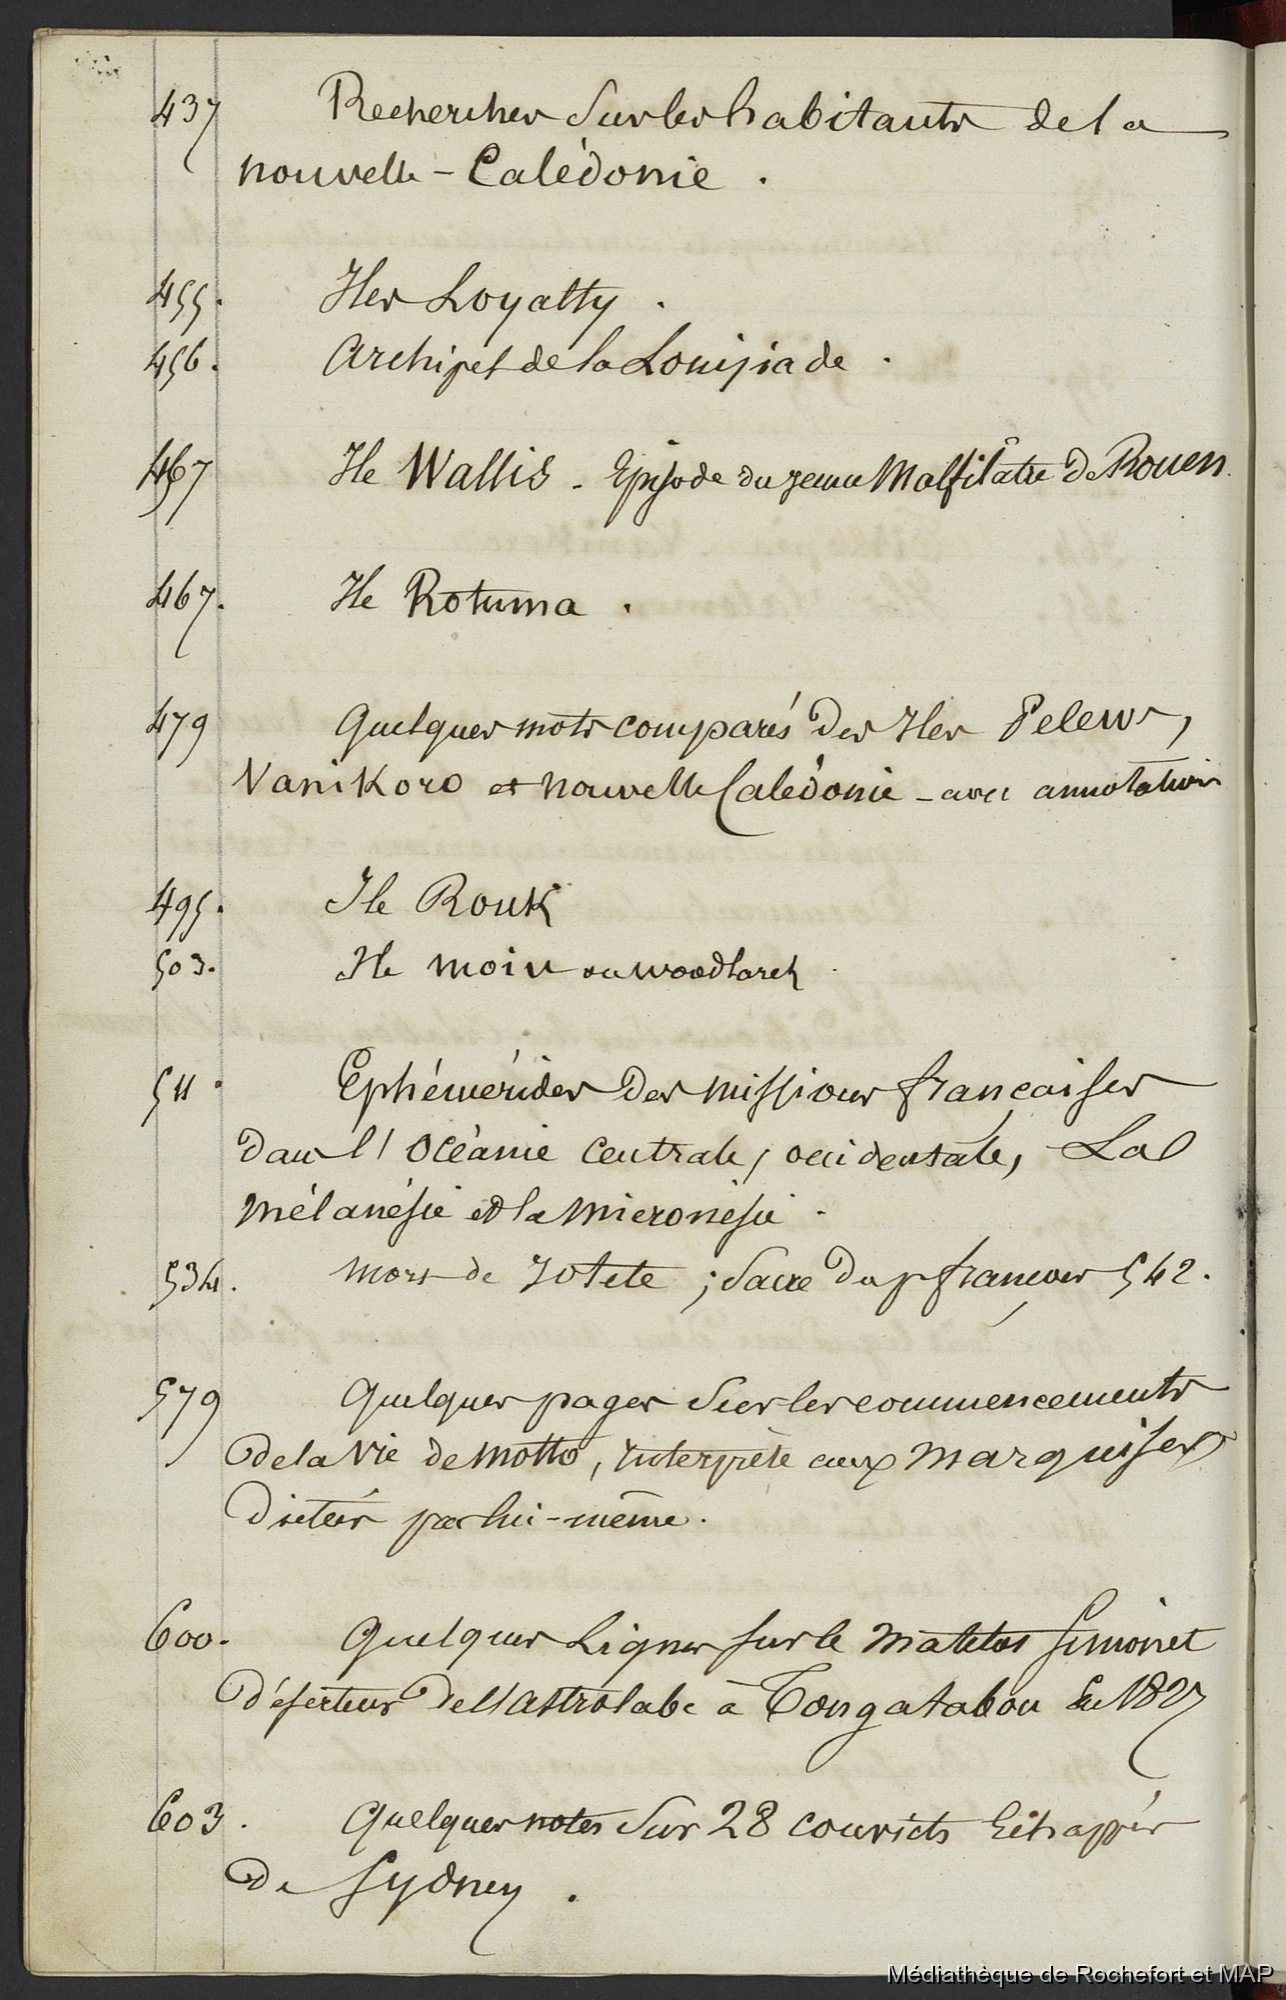 437 Recherches sur les habitants de la
nouvelle-Calédonie.
455. Iles Loyalty.
456. Archipel de la Louisiade.
467 Ile Wallis - Episode du jeune Malfilatre de Rouen
467. Ile Rotuma.
479 Quelques mots comparés des Iles Pelew,
Vanikoro et nouvelle Calédonie - avec annotations
495. Ile Rouk
503. Ile moiu ou woodlarck
511. Ephémérides des missions françaises
dans l'Océanie centrale, occidentale, La
mélanésie et la micronésie.
534. mort de Iotete ; Sacre du p françois 542.
579 Quelques pages sur les commencements
de la vie de Motto, interprète aux marquises
dictées par lui-même.
600. Quelques Lignes sur le matelot Simonet
déserteur de l'astrolabe à Tongatabou En 1827
603. Quelques notes sur 28 convicts Echappés
de Sydney.
Médiathèque de Rochefort et MAP